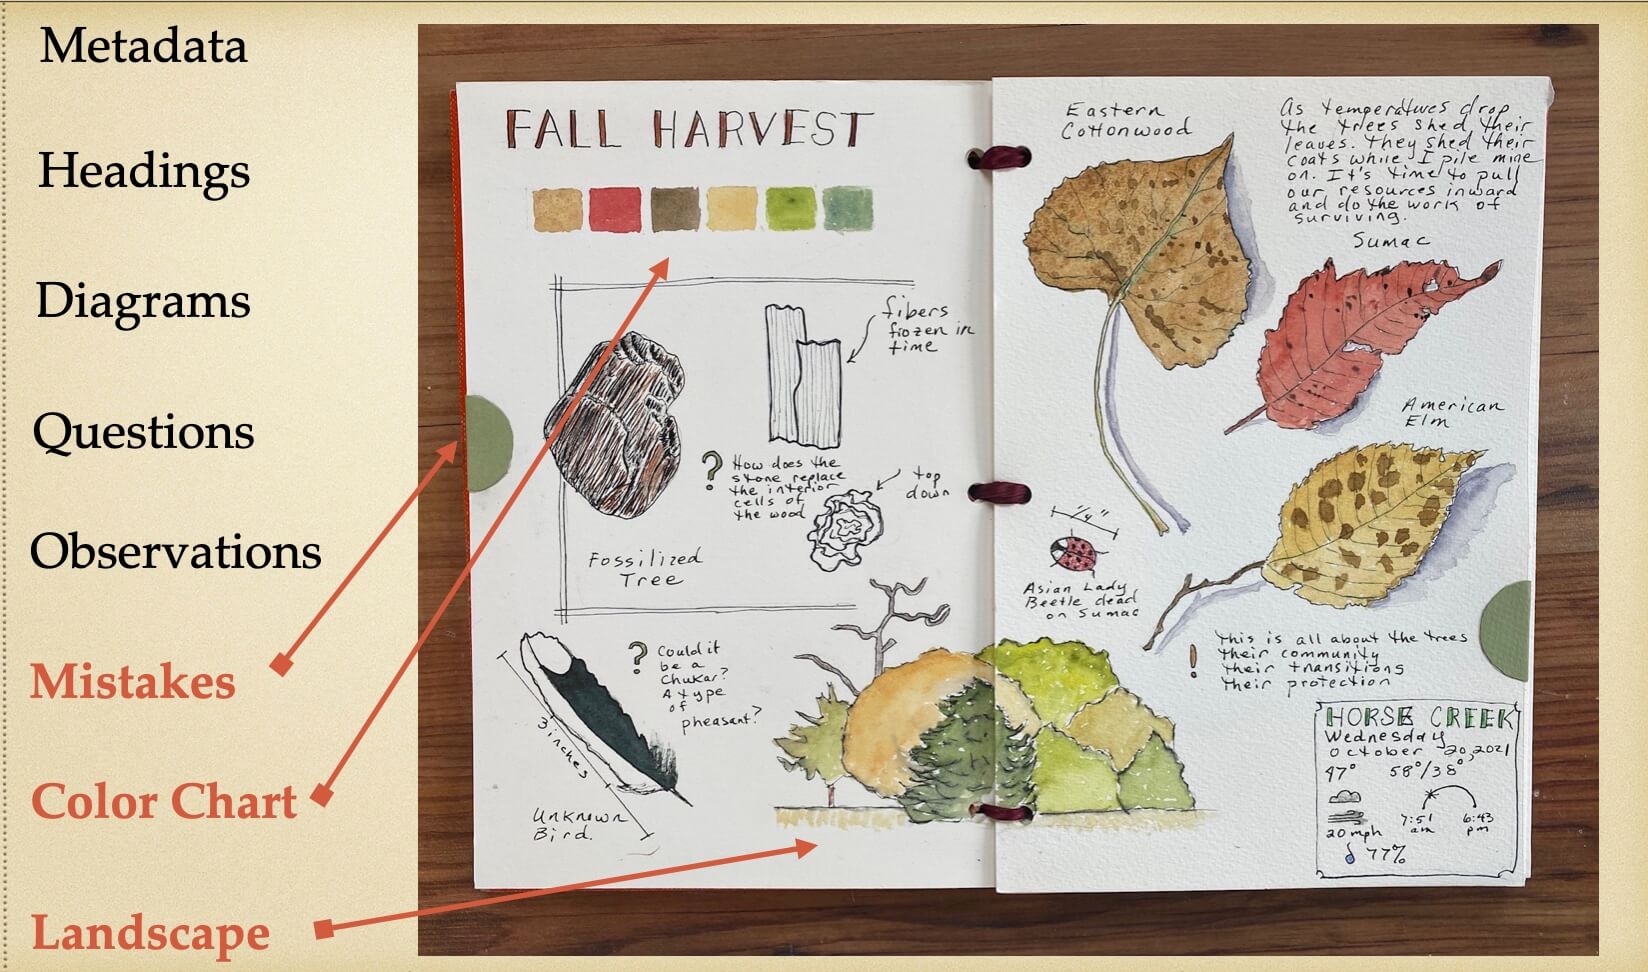 Metadata
Headings
Diagrams
Questions
Observations
Mistakes
Color Chart
Landscape
FALL HARVEST
fibers
frozen in
time
?
How does the
stone replace
the interior
cells of
the wood
top
down
Fossilized
Tree
?
Could it
be a
Chukar?
A type
of
pheasant?
3 inches
Unknown
Bird.
Eastern
Cottonwood
As temperatures drop
the trees shed their
leaves. They shed their
coats while I pile mine
on. It's time to pull
our resources inward
and do the work of
surviving.
Sumac
American
Elm
1/4"
Asian Lady
Beetle dead
on Sumac
!
This is all about the trees
their community
their transitions
their protection
HORSE CREEK
Wednesday
October 20, 2021
47° 58°/38°
20 mph
7:51
am
6:43
pm
77%